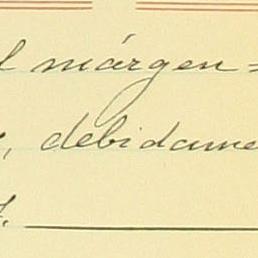 l márgen =
, debidame